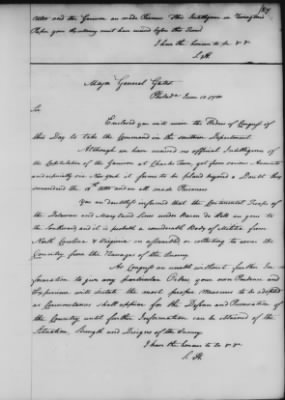 and the Garrison are made Prisoners This Intelligence or Transactions
before you the enemy must have arrived before this Time
I have the honour to be &c &c
S.H.
Major General Gates
Philada June 13. 1780
Sir
Enclosed you will receive the Orders of Congress of
this Day to take the Command in the southern Department.
Although we have received no official Intelligence of
the Capitulation of the Garrison at Charles Town, yet from various Accounts
and especially via New York it seems to be placed beyond a Doubt they
surrendered the 12th Ulto and are all made Prisoners
You are doubtless informed that the Continental Troops of
the Delaware and Maryland Lines under Baron de Kalb are gone to
the Southward and it is probable a considerable Body of Militia from
North Carolina & Virginia are assembled or collecting to cover the
Country from the Ravages of the Enemy.
As Congress are unable without further In-
formation to give any particular Orders your own Prudence and
Experience will dictate the most proper Measures to be adopted
as Circumstances shall appear for the Defence and Preservation of
the Country until further Information can be obtained of the
Situation Strength and Designs of the Enemy
I have the honour to be &c &c
S.H.